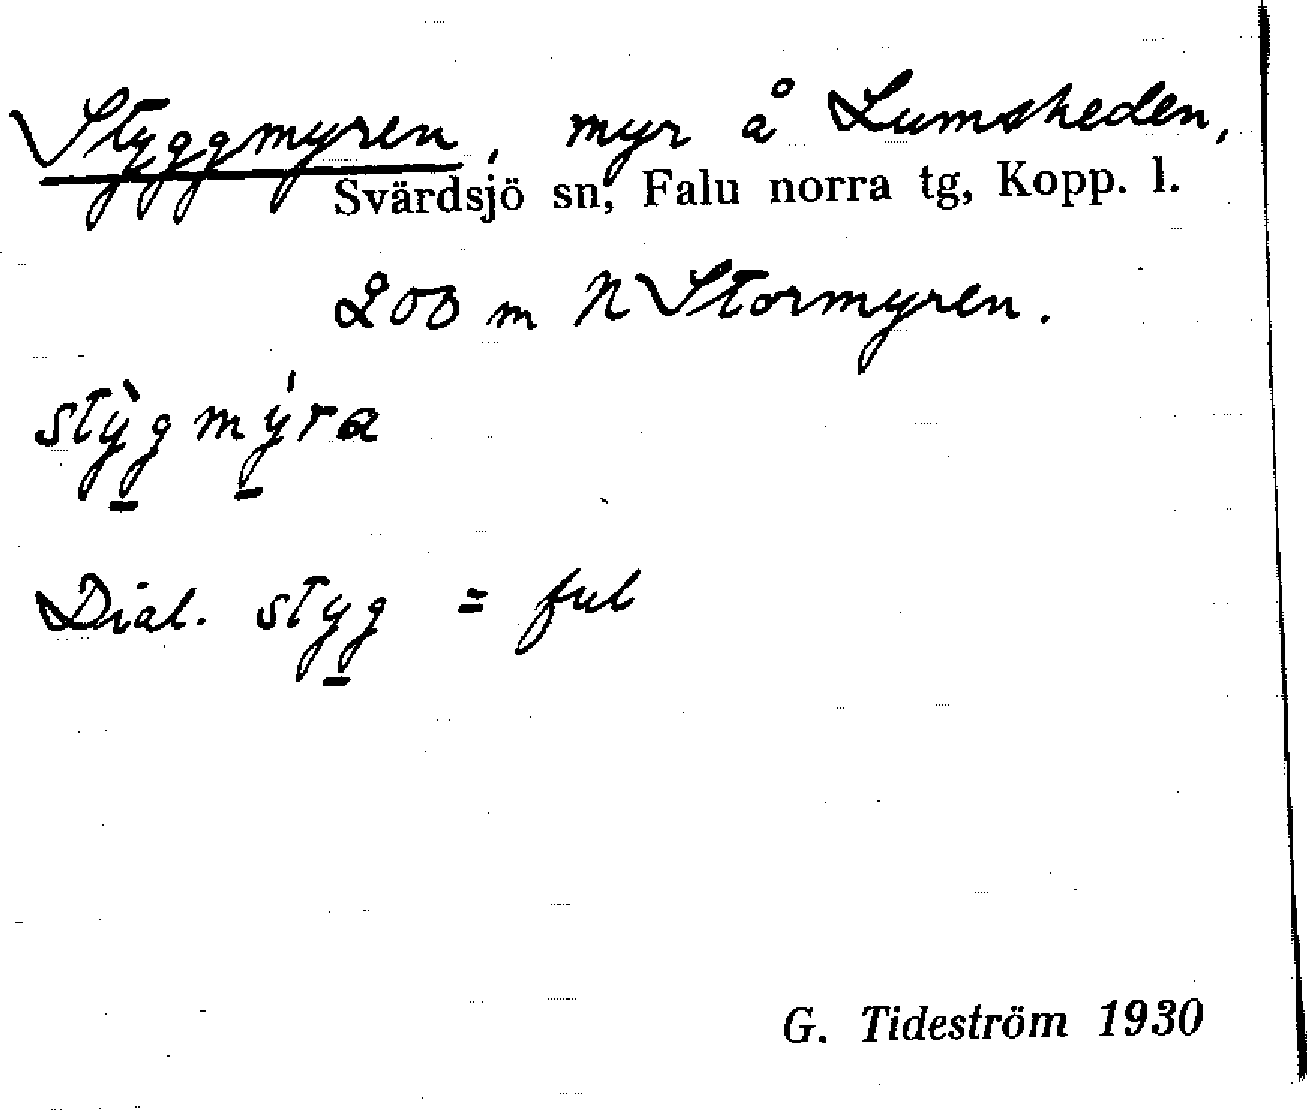 Styggmyren, myr å Lumsheden,
Svärdsjö sn, Falu norra tg, Kopp. l.
200 m N Stormyren.
stỳg mýra
Dial. styg = ful
G. Tideström 1930